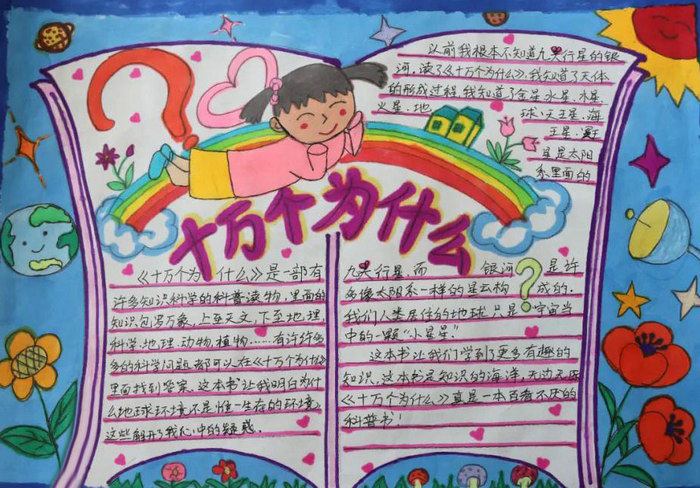 十万个为什么
以前我根本不知道九大行星的银
河,读了《十万个为什么》,我知道了天体
的形成过程,我知道了金星、水星、木星、
火星、地
球、天王星、海
王星、
星是太阳
系里面的
《十万个为什么》是一部有
许多知识科学的科普读物,里面的
知识包罗万象,上至天文,下至地理,
科学、地理、动物、植物……有许许多
多的科学问题,都可以在《十万个为什么》
里面找到答案。这本书让我明白为什
么地球环境不是惟一生存的环境,
这些解开了我心中的疑惑。
九大行星,而银河?是许
多像太阳系一样的星云构成的,
我们人类居住的地球只是宇宙当
中的一颗“小星星”
这本书让我们学到了更多有趣的
知识,这本书是知识的海洋,无边无际
《十万个为什么》真是一本百看不厌的
科普书!